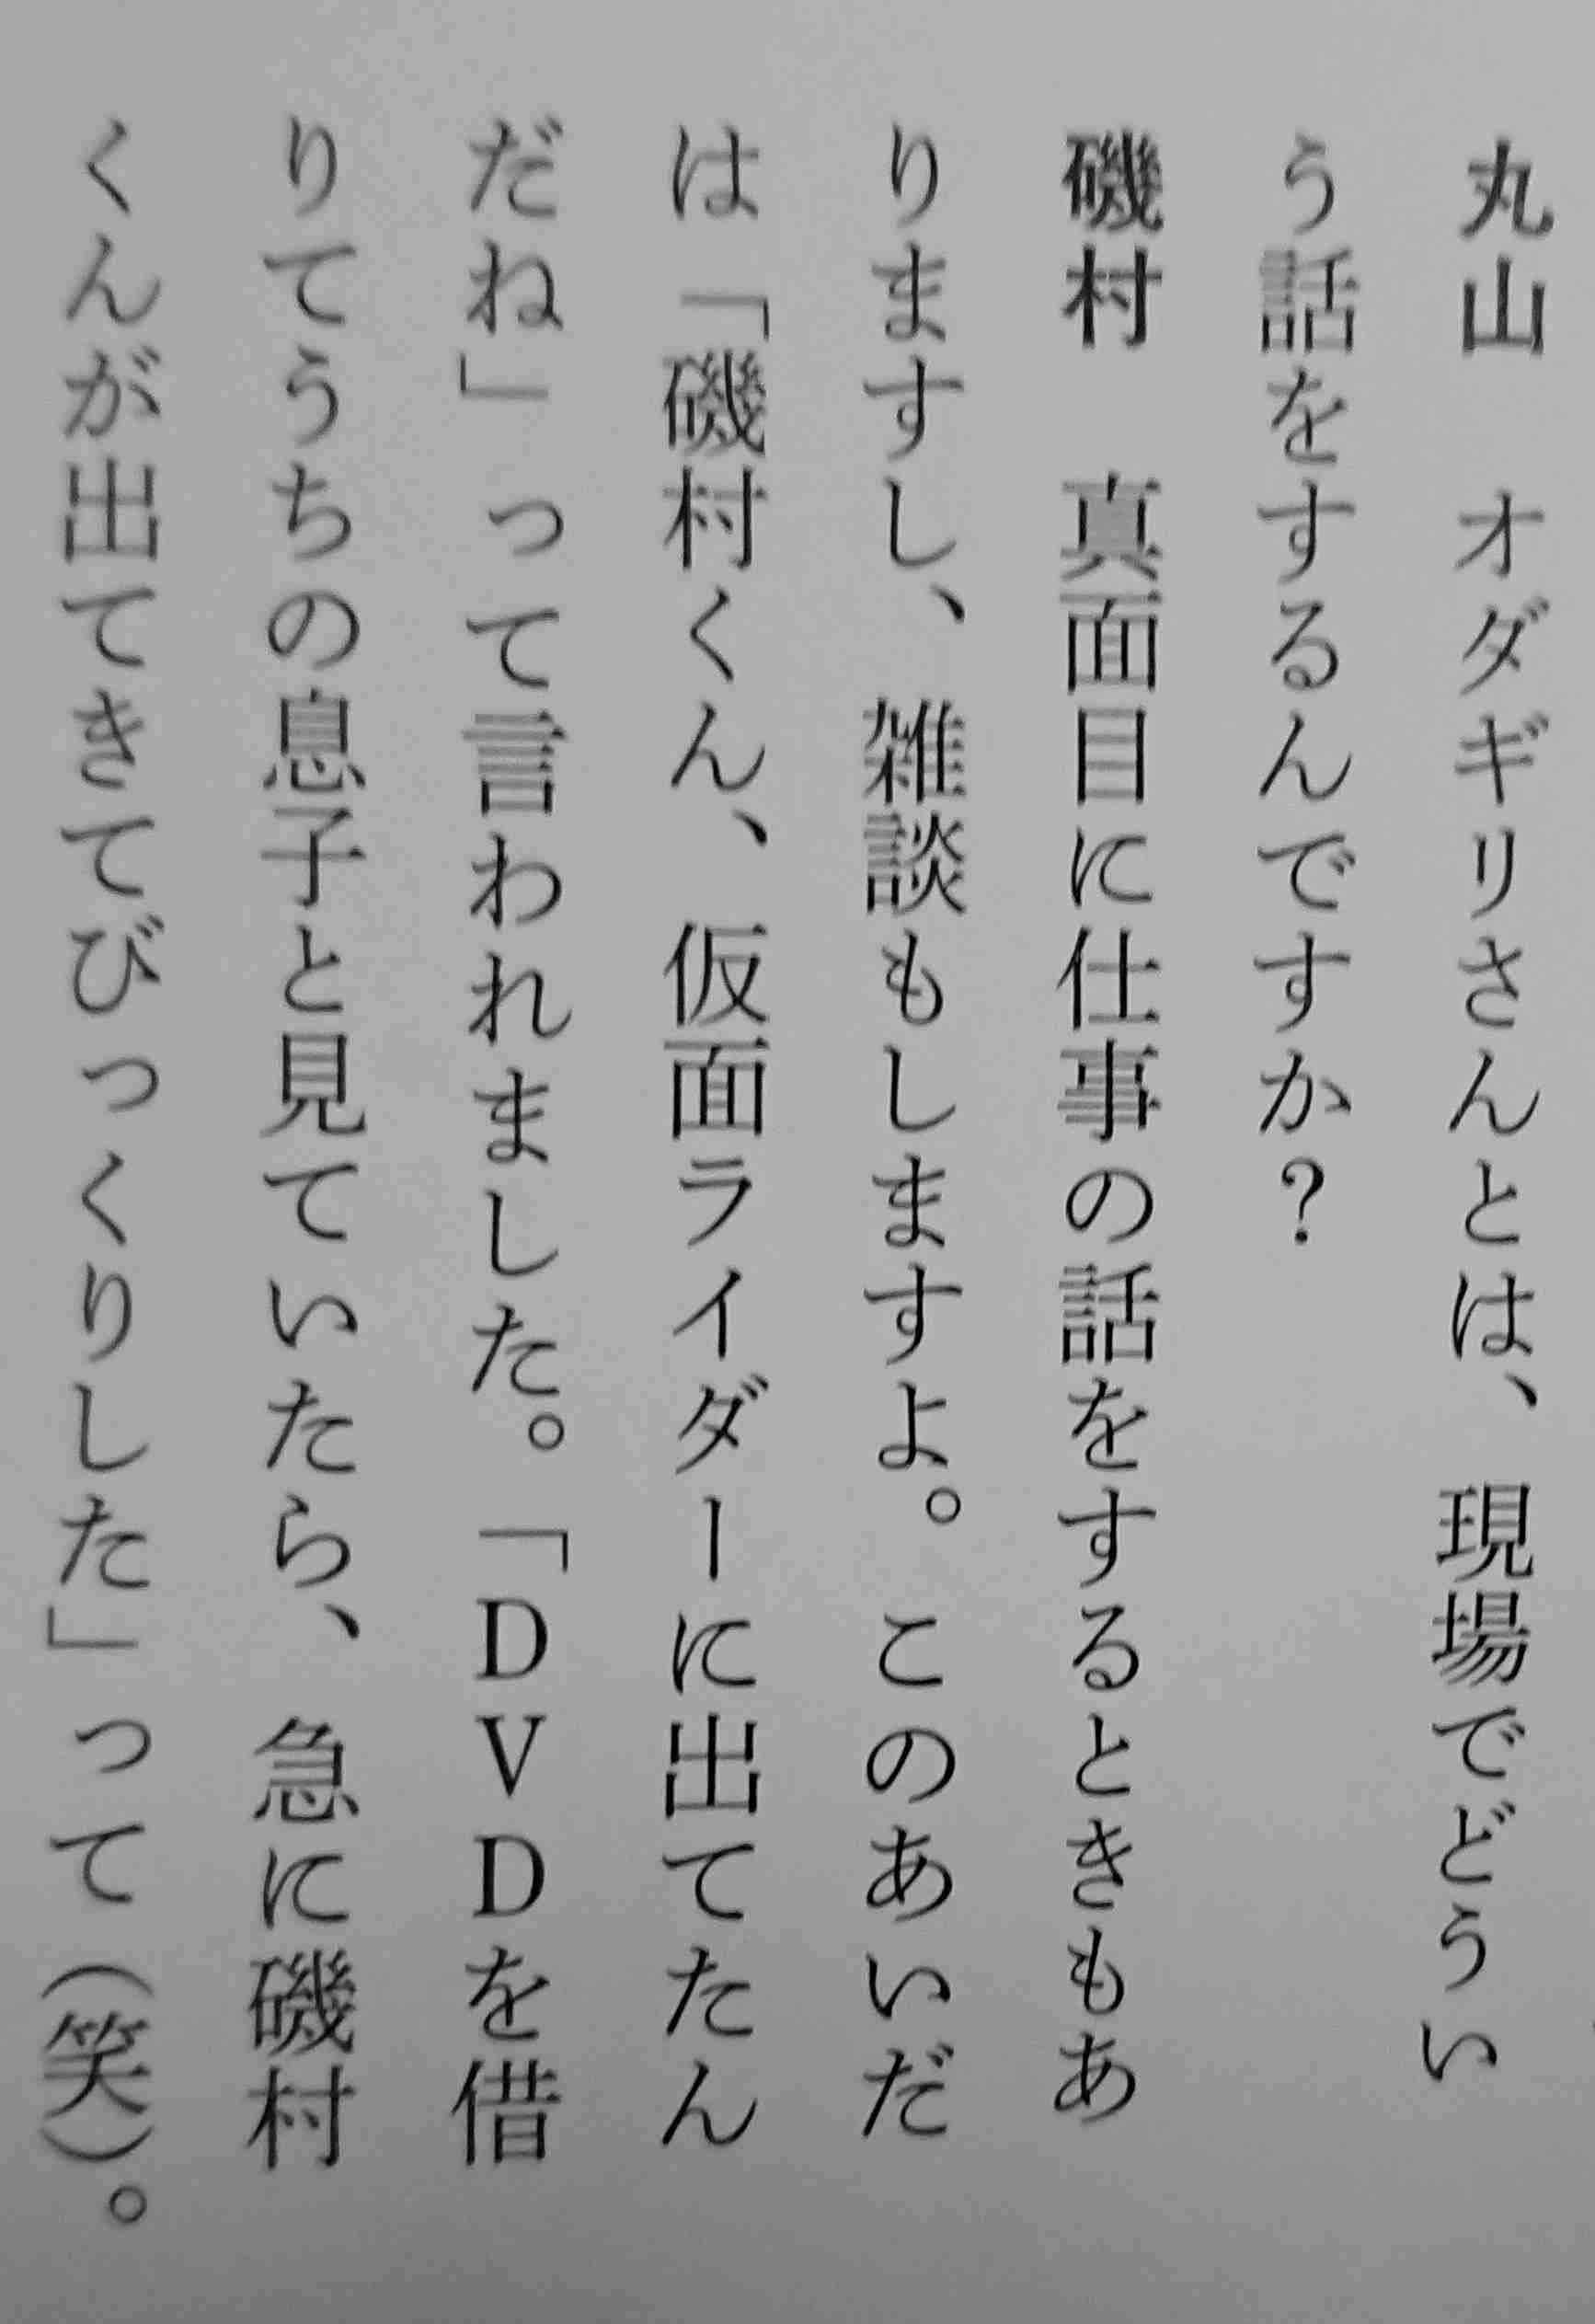 丸山　オダギリさんとは、現場でどうい
う話をするんですか？
磯村　真面目に仕事の話をするときもあ
りますし、雑談もしますよ。このあいだ
は「磯村くん、仮面ライダーに出てたん
だね」って言われました。「DVDを借
りてうちの息子と見ていたら、急に磯村
くんが出てきてびっくりした」って（笑）。